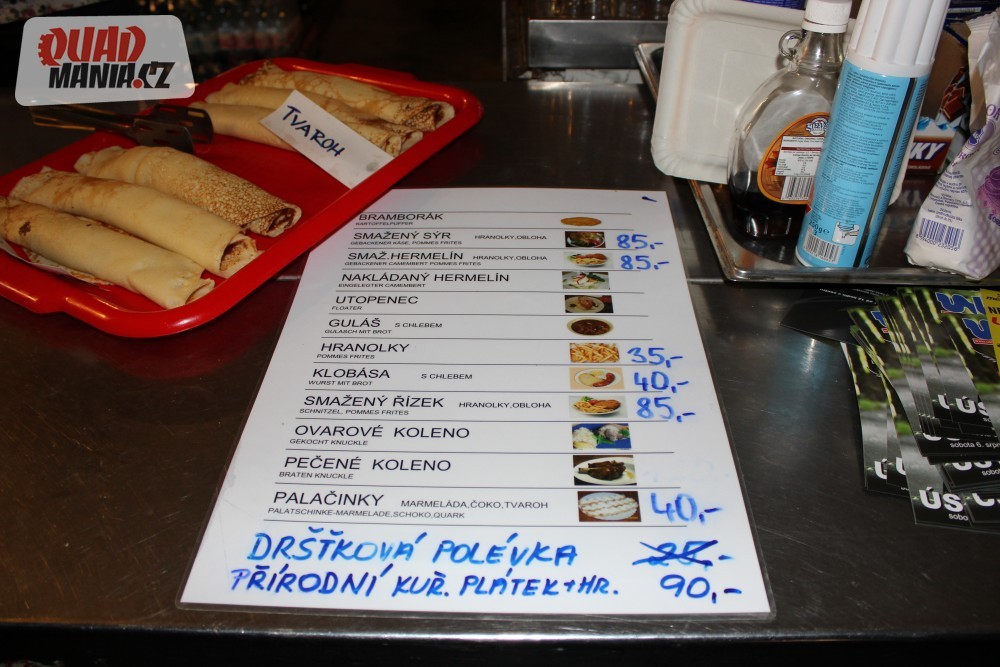 QUAD
MANIA.CZ
TVAROH
BRAMBORÁK
KARTOFFELPUFFER
SMAŽENÝ SÝR HRANOLKY,OBLOHA 85,-
GEBACKENER KÄSE, POMMES FRITES
SMAŽ.HERMELÍN HRANOLKY,OBLOHA 85,-
GEBACKENER CAMEMBERT POMMES FRITES
NAKLÁDANÝ HERMELÍN
EINGELEGTER CAMEMBERT
UTOPENEC
FLOATER
GULÁŠ S CHLEBEM
GULASCH MIT BROT
HRANOLKY 35,-
POMMES FRITES
KLOBÁSA S CHLEBEM 40,-
WURST MIT BROT
SMAŽENÝ ŘÍZEK HRANOLKY,OBLOHA 85,-
SCHNITZEL, POMMES FRITES
OVAROVÉ KOLENO
GEKOCHT KNUCKLE
PEČENÉ KOLENO
BRATEN KNUCKLE
PALAČINKY MARMELÁDA,ČOKO,TVAROH 40,-
PALATSCHINKE-MARMELADE,SCHOKO,QUARK
DRŠŤKOVÁ POLÉVKA
PŘÍRODNÍ KUŘ. PLÁTEK+HR. 90,-
ÚS
sobota 6. srpn
ÚS
sobo